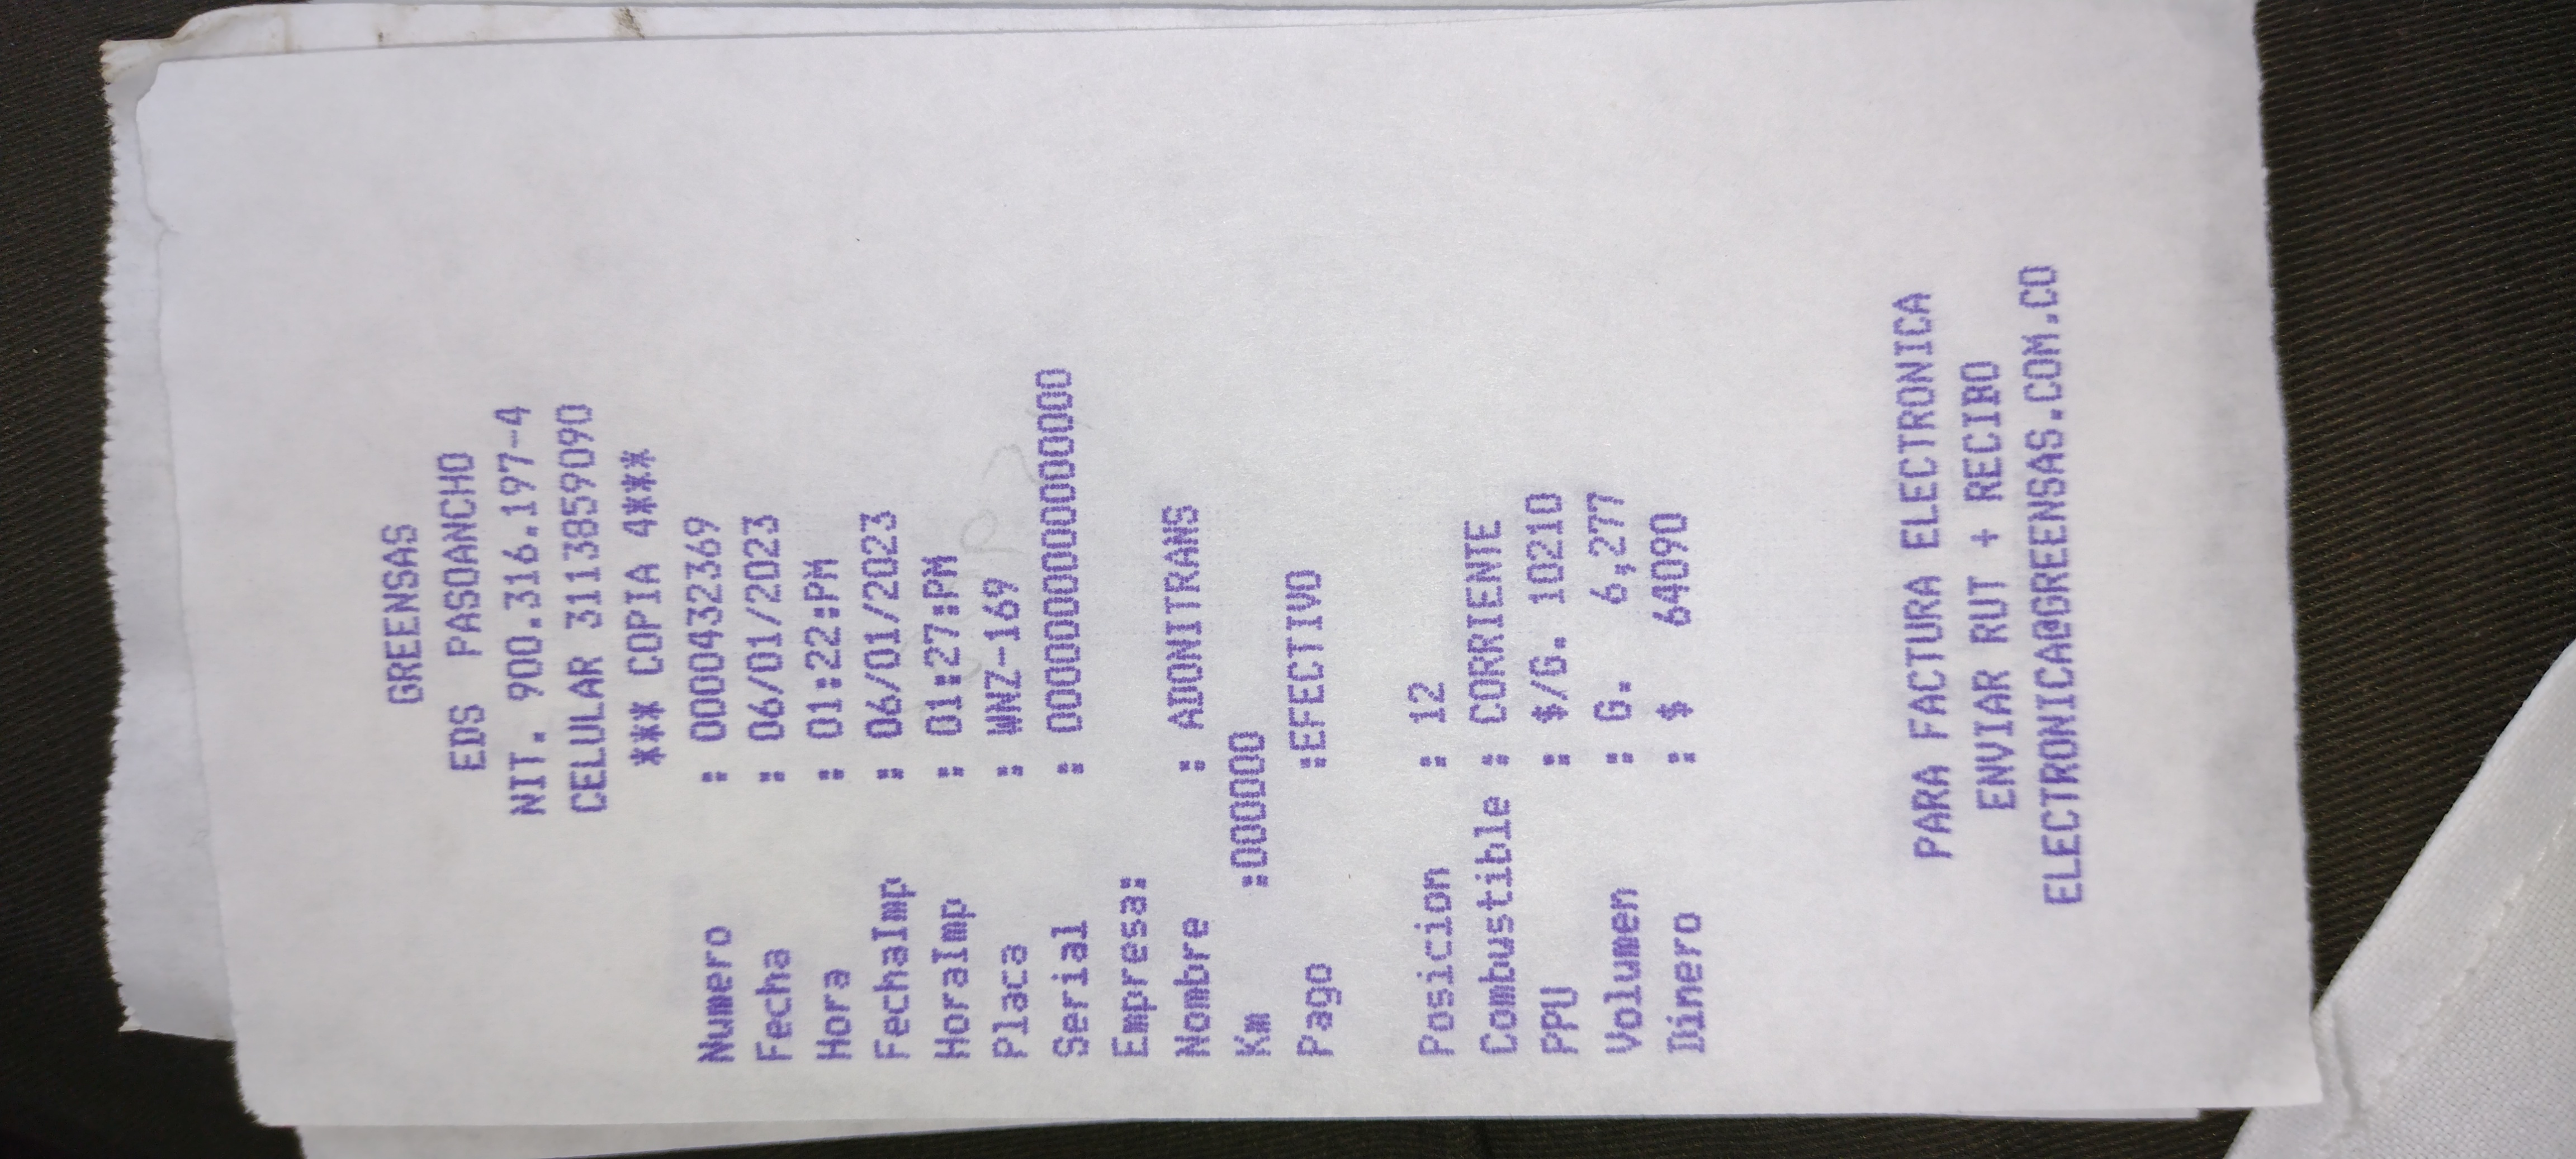 GREENSAS
EDS PASOANCHO
NIT. 900.316.197-4
CELULAR 3113859090
*** COPIA 4***
Numero : 0000432369
Fecha : 06/01/2023
Hora : 01:22:PM
FechaImp : 06/01/2023
HoraImp : 01:27:PM
Placa : WNZ-169
Serial : 0000000000000000
Empresa:
Nombre : ADONITRANS
Km :000000
Pago :EFECTIVO
Posicion : 12
Combustible : CORRIENTE
PPU : $/G. 10210
Volumen : G. 6,277
Dinero : $ 64090
PARA FACTURA ELECTRONICA
ENVIAR RUT + RECIBO
ELECTRONICA@GREENSAS.COM.CO